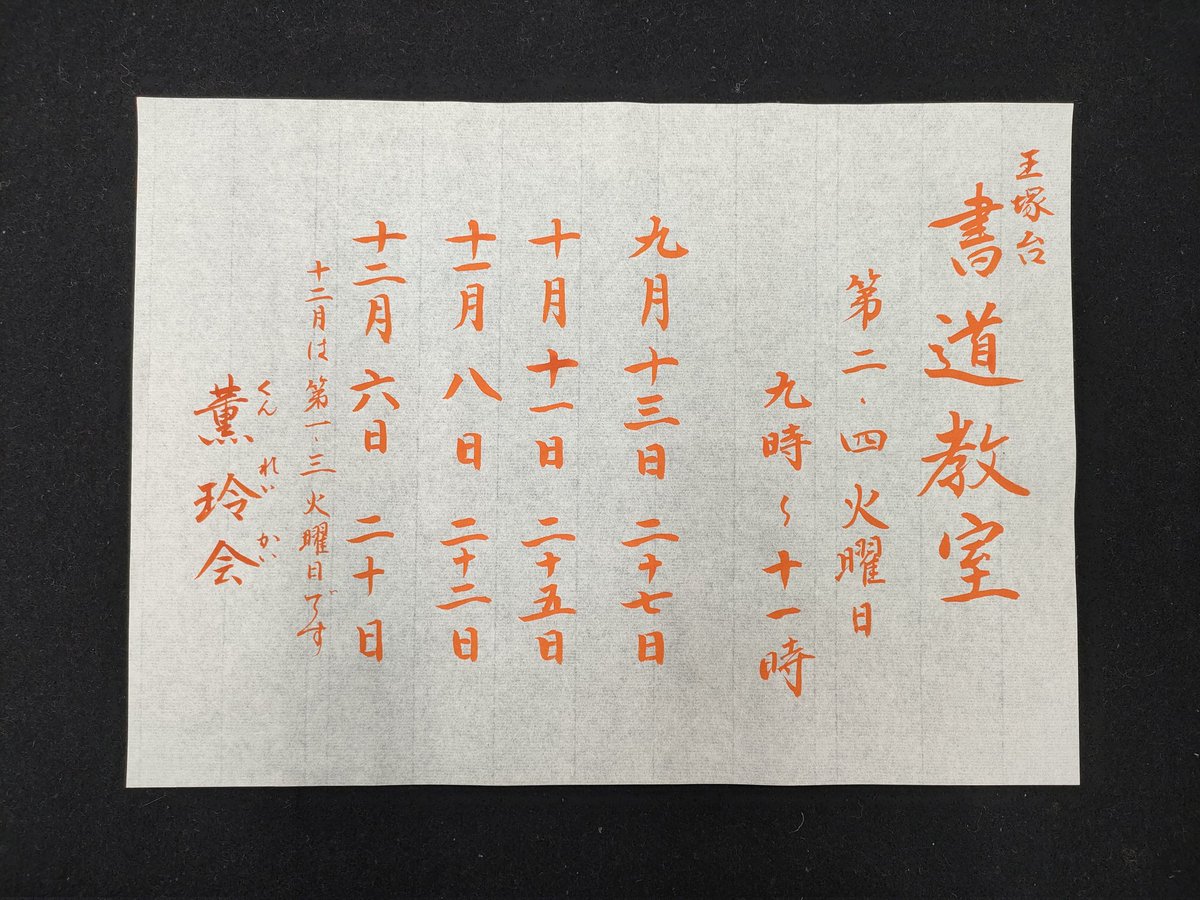 王塚台
書道教室
第二、四火曜日
九時〜十一時
九月十三日 二十七日
十月十一日 二十五日
十一月八日 二十二日
十二月六日 二十日
十二月は第一、三火曜日です
くんれいかい
薫玲会